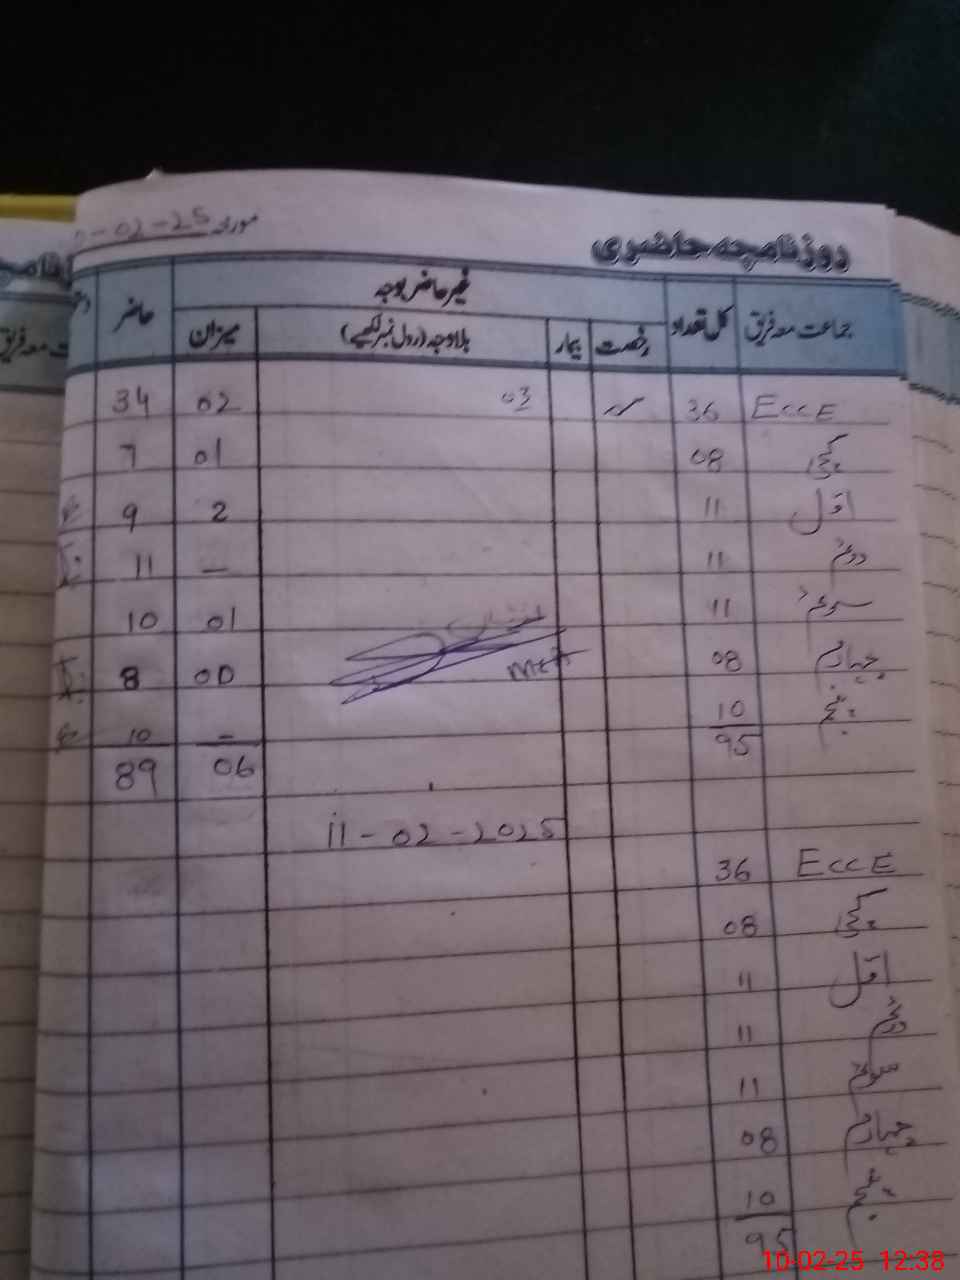 مورخہ 0-02-25
روزنامچہ حاضری
جماعت معہ فریق کل تعداد غیر حاضر بوجہ حاضر
رخصت بیمار بلاوجہ (رول نمبر لکھیے) میزان
ECCE 36 03 02 34
08 01 7
اول 11 2 9
دوئم 11 — 11
سوئم 11 01 10
چہارم 08 00 8
پنجم 10 - 10
95 06 89
MEA
11-02-2025
ECCE 36
08
اول 11
دوئم 11
سوئم 11
چہارم 08
پنجم 10
95
10-02-25 12:38